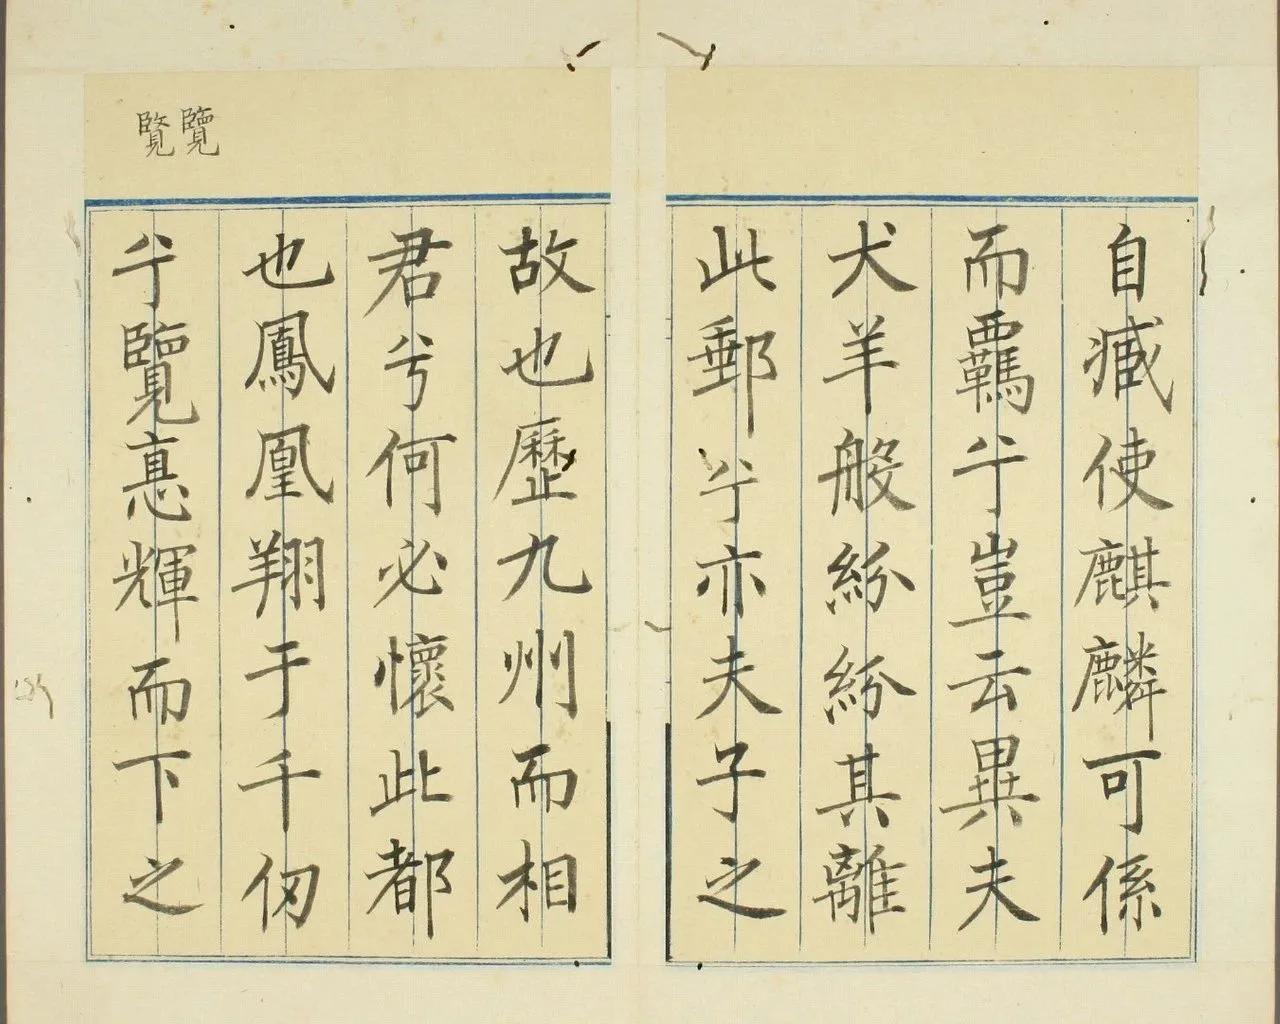 自臧使麒麟可係
而覊兮豈云異夫
犬羊般紛紛其離
此郵兮亦夫子之
故也歷九州而相
君兮何必懷此都
也鳳凰翔于千仞
兮覽悳輝而下之
覽